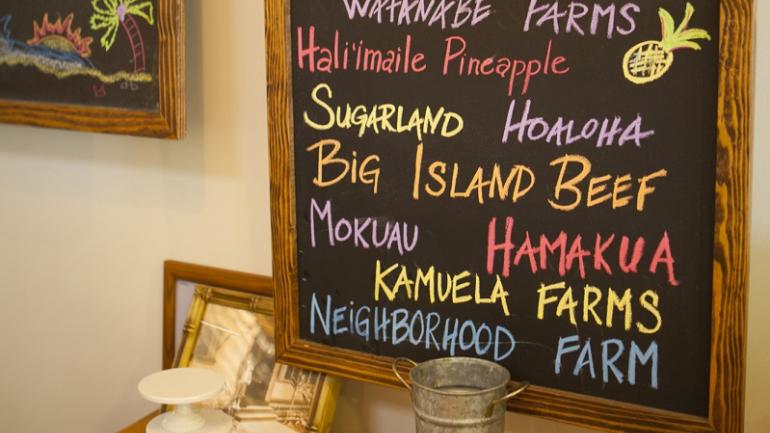 WATANABE FARMS
Hali'imaile Pineapple
SUGARLAND HOALOHA
BIG ISLAND BEEF
MOKUAU HAMAKUA
KAMUELA FARMS
NEIGHBORHOOD FARM